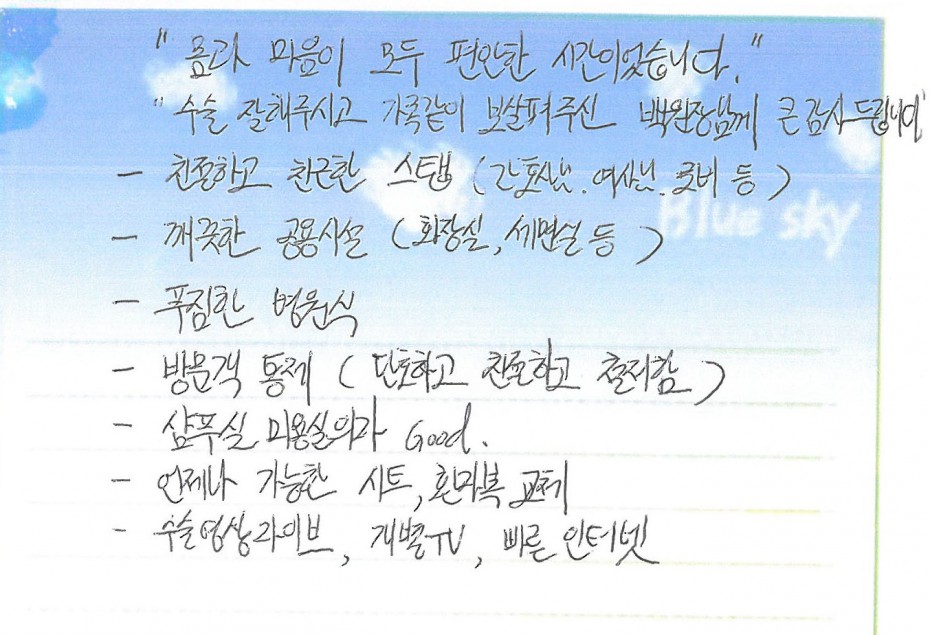 "몸과 마음이 모두 편안한 시간이었습니다."
"수술 잘해주시고 가족같이 보살펴주신 백원장님께 큰 감사 드립니다"
- 친절하고 친근한 스탭 (간호사님. 여사님. 로비 등)
Blue sky
- 깨끗한 공용시설 (화장실, 세면실 등)
- 푸짐한 병원식
- 방문객 통제 (단호하고 친절하고 철저함)
- 샴푸실 미용실의자 Good.
- 언제나 가능한 시트, 환자복 교체
- 수술영상라이브, 개별TV, 빠른 인터넷